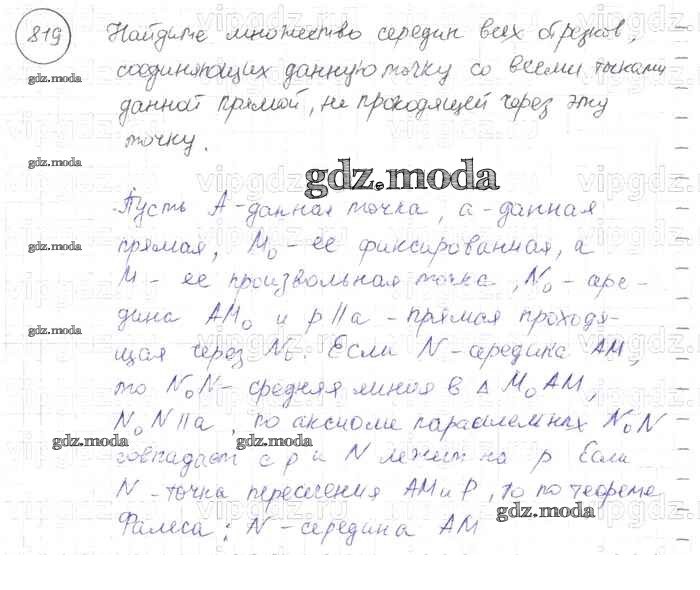 819 Найдите множество середин всех отрезков,
соединяющих данную точку со всеми точками
данной прямой, не проходящей через эту
точку.
gdz.moda
Пусть A - данная точка, a - данная
прямая, M₀ - ее фиксированная, а
M - ее произвольная точка, N₀ - сере-
дина AM₀ и p || a - прямая проходя-
щая через N₀. Если N - середина AM,
то N₀N - средняя линия в △ M₀AM,
N₀N || a, по аксиоме параллельных N₀N
совпадает с p и N лежит на p Если
N - точка пересечения AM и P, то по теореме
Фалеса: N - середина AM
gdz.moda
gdz.moda
gdz.moda
gdz.moda
gdz.moda
gdz.moda
gdz.moda
gdz.moda